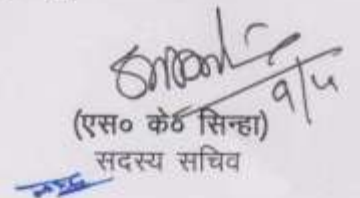 9/4
(एस० के० सिन्हा)
सदस्य सचिव